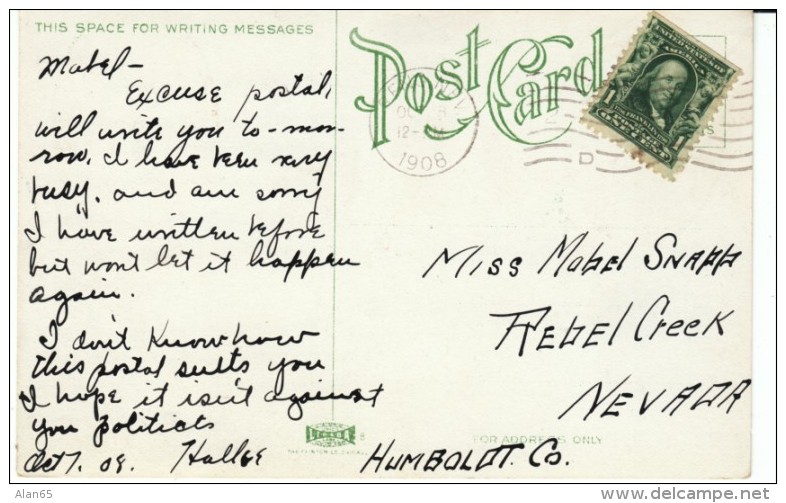 THIS SPACE FOR WRITING MESSAGES
Post Card
Mabel-
Excuse postal,
will write you to-mor-
row. I have been very
busy, and am sorry
I have written before
but wont let it happen
again.
I don't Know how
this postal suits you
I hope it isn't against
you politicts
Oct 7. 08.
12-
1908
D
UNITED STATES OF
AMERICA
1
1
ONE CENT
Miss Mabel Snapp
Rebel Creek
NEVADA
HUMBOLDT. Co.
FOR ADDRESS ONLY
Alan65
http://www.delcampe.net